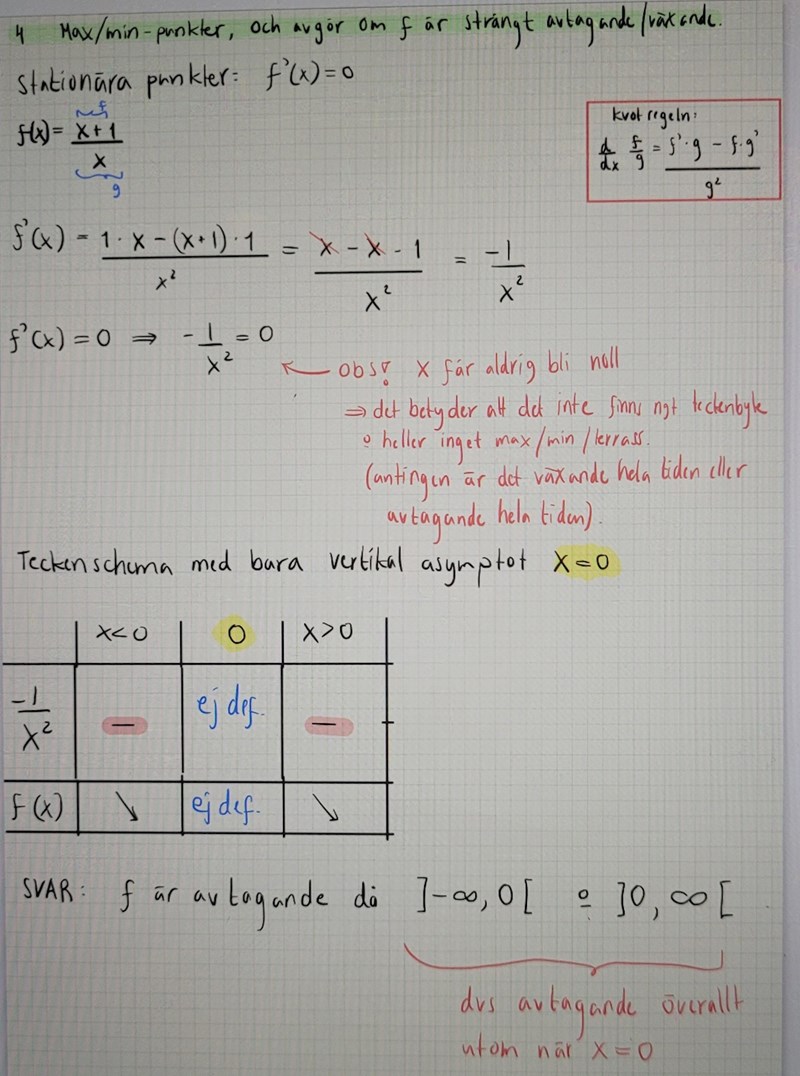 4 Max/min-punkter, och avgör om f är strängt avtagande/växande.
Stationära punkter: f'(x) = 0
f
f(x) = (x+1)/x
g
kvotregeln:
d/dx f/g = (f'·g - f·g')/g²
f'(x) = (1·x - (x+1)·1)/x² = (x - x - 1)/x² = -1/x²
f'(x) = 0 ⇒ -1/x² = 0
← obs! x får aldrig bli noll
⇒ det betyder att det inte finns ngt teckenbyte
o heller inget max/min/terrass.
(antingen är det växande hela tiden eller
avtagande hela tiden).
Teckenschema med bara vertikal asymptot x=0
x<0 0 x>0
-1/x² - ej def. -
f(x) ↘ ej def. ↘
SVAR: f är avtagande då ]-∞, 0[ o ]0, ∞[
dvs avtagande överallt
utom när x=0